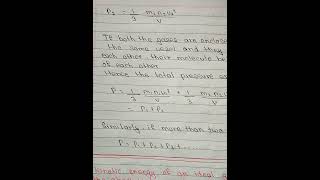 P₂ = 1/3 m₂n₂u₂²/V
If both the gases are enclose
the same vessel and they
each other their molecule be
of each other
Hence the total pressure ex
P = 1/3 m₁n₁u₁²/V + 1/3 m₂n₂
= P₁+P₂
Similarly, if more than two
P = P₁+P₂+P₃+......
Kinetic energy of an ideal g